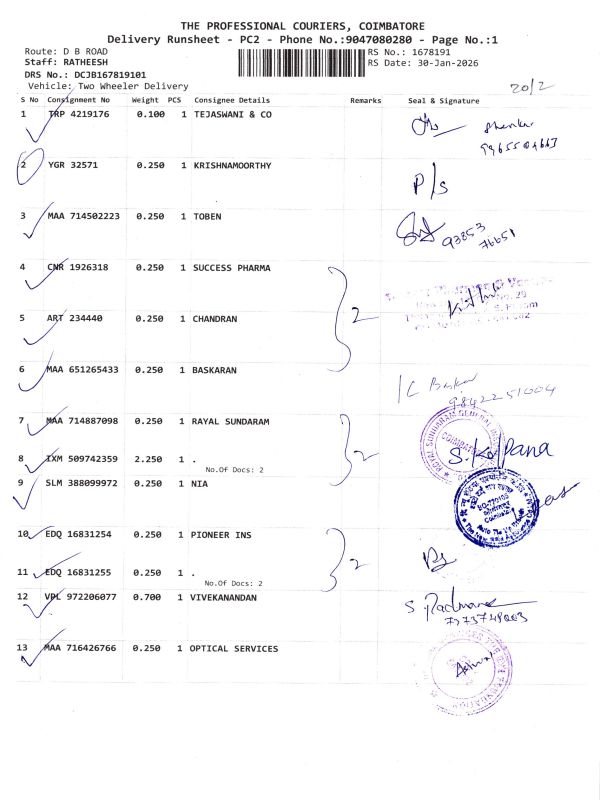 THE PROFESSIONAL COURIERS, COIMBATORE
Delivery Runsheet - PC2 - Phone No.:9047080280 - Page No.:1
Route: D B ROAD
RS No.: 1678191
Staff: RATHEESH
RS Date: 30-Jan-2026
DRS No.: DCJB167819101
Vehicle: Two Wheeler Delivery
20/2
S No Consignment No Weight PCS Consignee Details Remarks Seal & Signature
1 TRP 4219176 0.100 1 TEJASWANI & CO
2 YGR 32571 0.250 1 KRISHNAMOORTHY
P/s
3 MAA 714502223 0.250 1 TOBEN
93853
76651
4 CNR 1926318 0.250 1 SUCCESS PHARMA
2
5 ART 234440 0.250 1 CHANDRAN
6 MAA 651265433 0.250 1 BASKARAN
9842251004
7 MAA 714887098 0.250 1 RAYAL SUNDARAM
2
S. Kalpana
8 IXM 509742359 2.250 1 .
No.Of Docs: 2
9 SLM 388099972 0.250 1 NIA
10 EDQ 16831254 0.250 1 PIONEER INS
2
11 EDQ 16831255 0.250 1 .
No.Of Docs: 2
12 VPL 972206077 0.700 1 VIVEKANANDAN
13 MAA 716426766 0.250 1 OPTICAL SERVICES